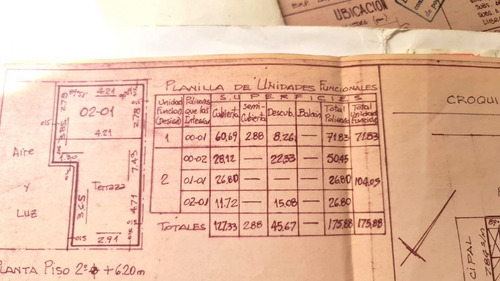 UBICACION
PLANILLA DE UNIDADES FUNCIONALES
SUPERFICIE
Unidad Funcional (Desig.)
Polígonos que las Integran
Cubierta
Semi-Cubierta
Descub.
Balcón
Total Polígono
Total Unidad Funcional
1 00-01 60,69 2.88 8.26 — 71.83 71.83
00-02 28,12 — 22,33 — 50,45
2 01-01 26.80 — — — 26.80 104,05
02-01 11.72 — 15.08 — 26.80
TOTALES 127.33 2.88 45,67 — 175,88 175,88
4.21
02-01
2.78
2.78
4.21
1.30
7.43
Aire
y
Luz
Terraza
3.65
4.71
.015
2.91
PLANTA PISO 2º + 6.20 m
CROQUI
CIPAL